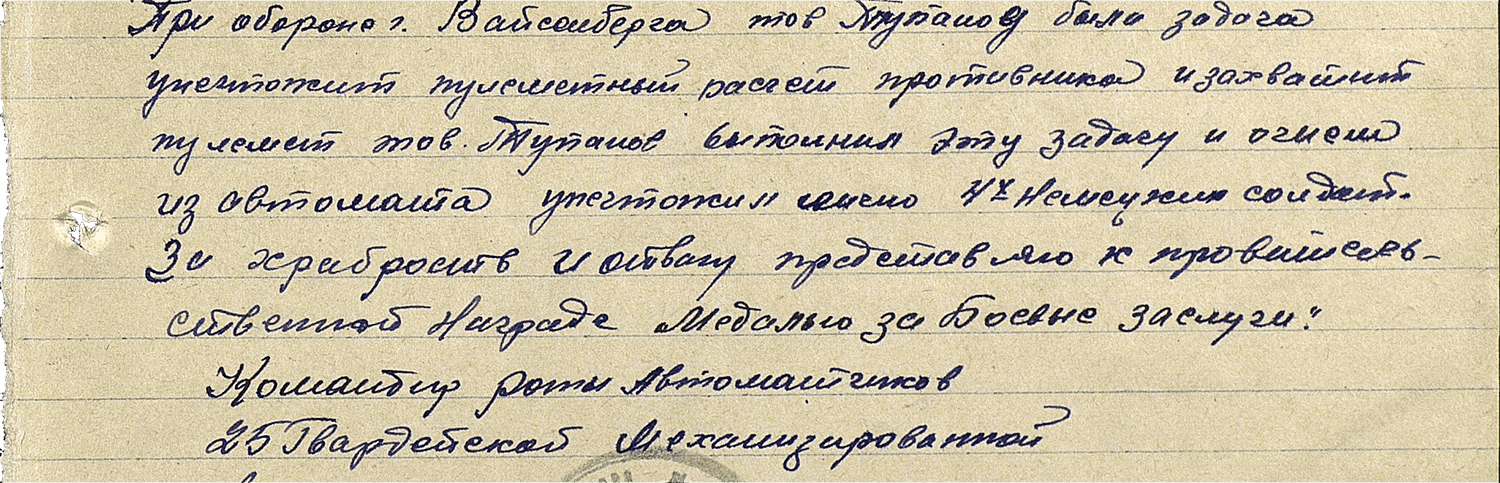 При обороне г. Вайсенберга тов Тупанову была задача
уничтожит пулеметный расчет противника и захватит
пулемет тов. Тупанов выполнил эту задачу и
из автомата уничтожил 4х Немецких солдат.
За храбрость и отвагу представляю к провитель-
ственной Награде Медалью за Боевые заслуги."
Командир роты Автоматчиков
25 Гвардейской Механизированной